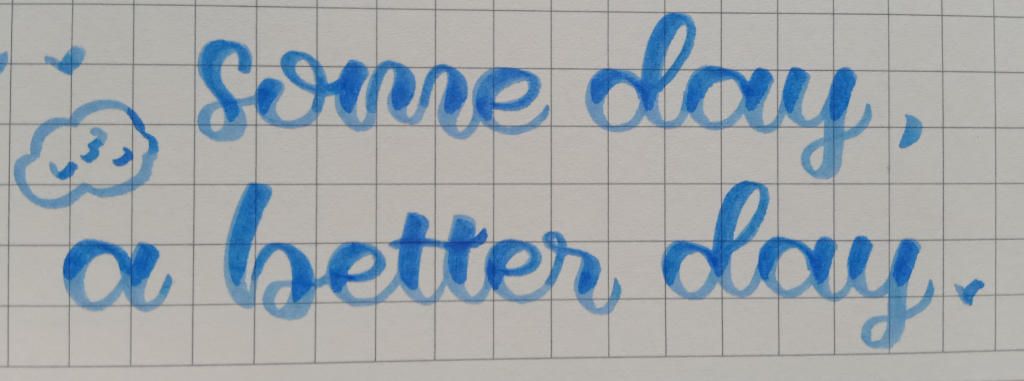 some day,
a better day.